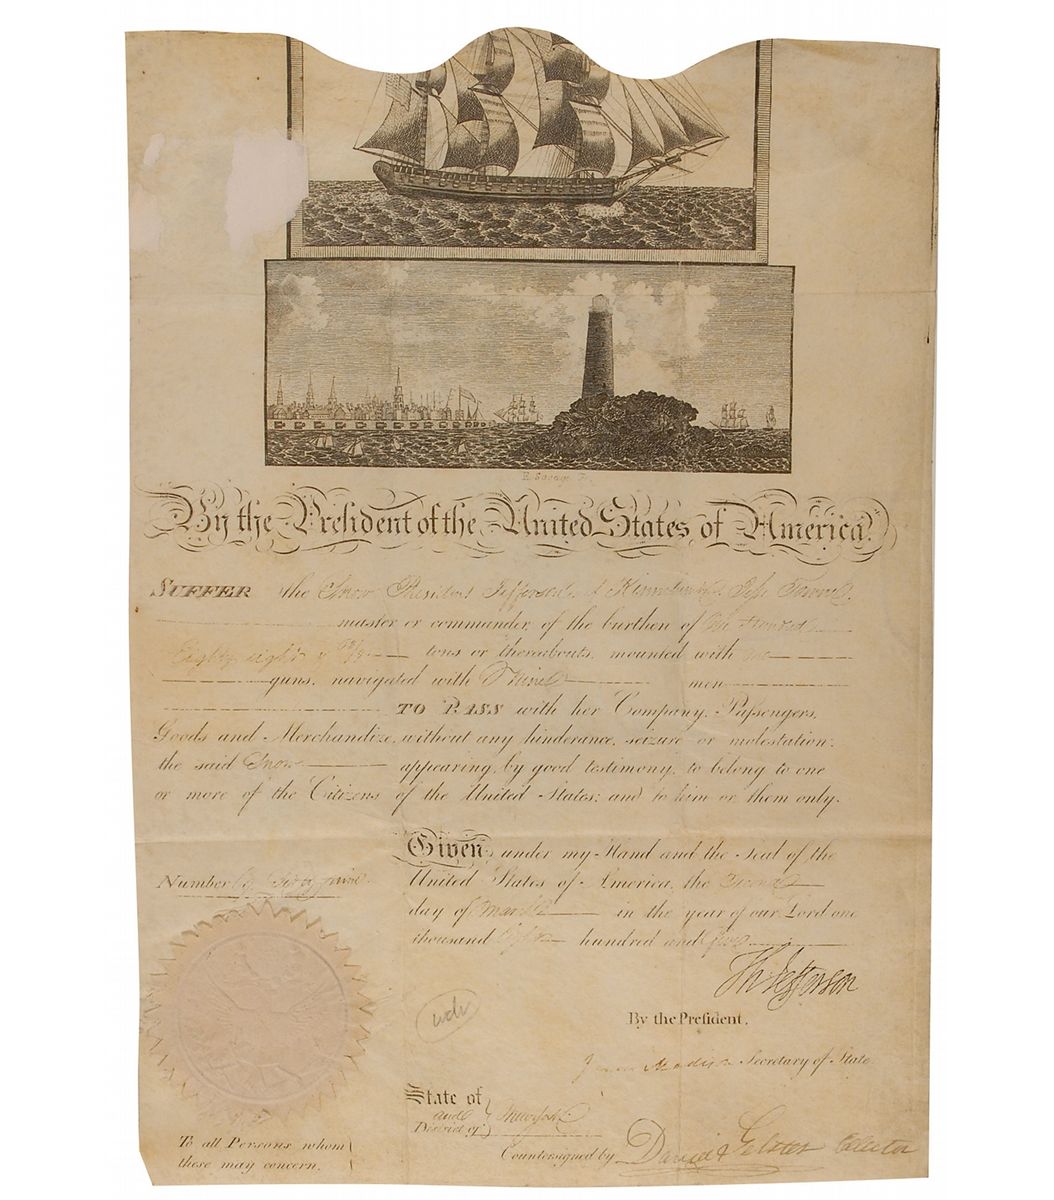 E. Savage
By the President of the United States of America.
SUFFER the Snow President Jefferson of
master or commander, of the burthen of One Hundred
Eighty eight tons or thereabouts, mounted with
guns, navigated with Nine men
TO PASS with her Company, Passengers,
Goods and Merchandize, without any hinderance, seizure or molestation;
the said Snow appearing, by good testimony, to belong to one
or more of the Citizens of the United States; and to him or them only.
Given, under my Hand and the Seal of the
United States of America, the Second
day of March in the year of our Lord one
thousand Eight hundred and five
Number
Th Jefferson
By the President,
James Madison Secretary of State
State of
and New York
District of
Countersigned by Collector
To all Persons whom
these may concern.